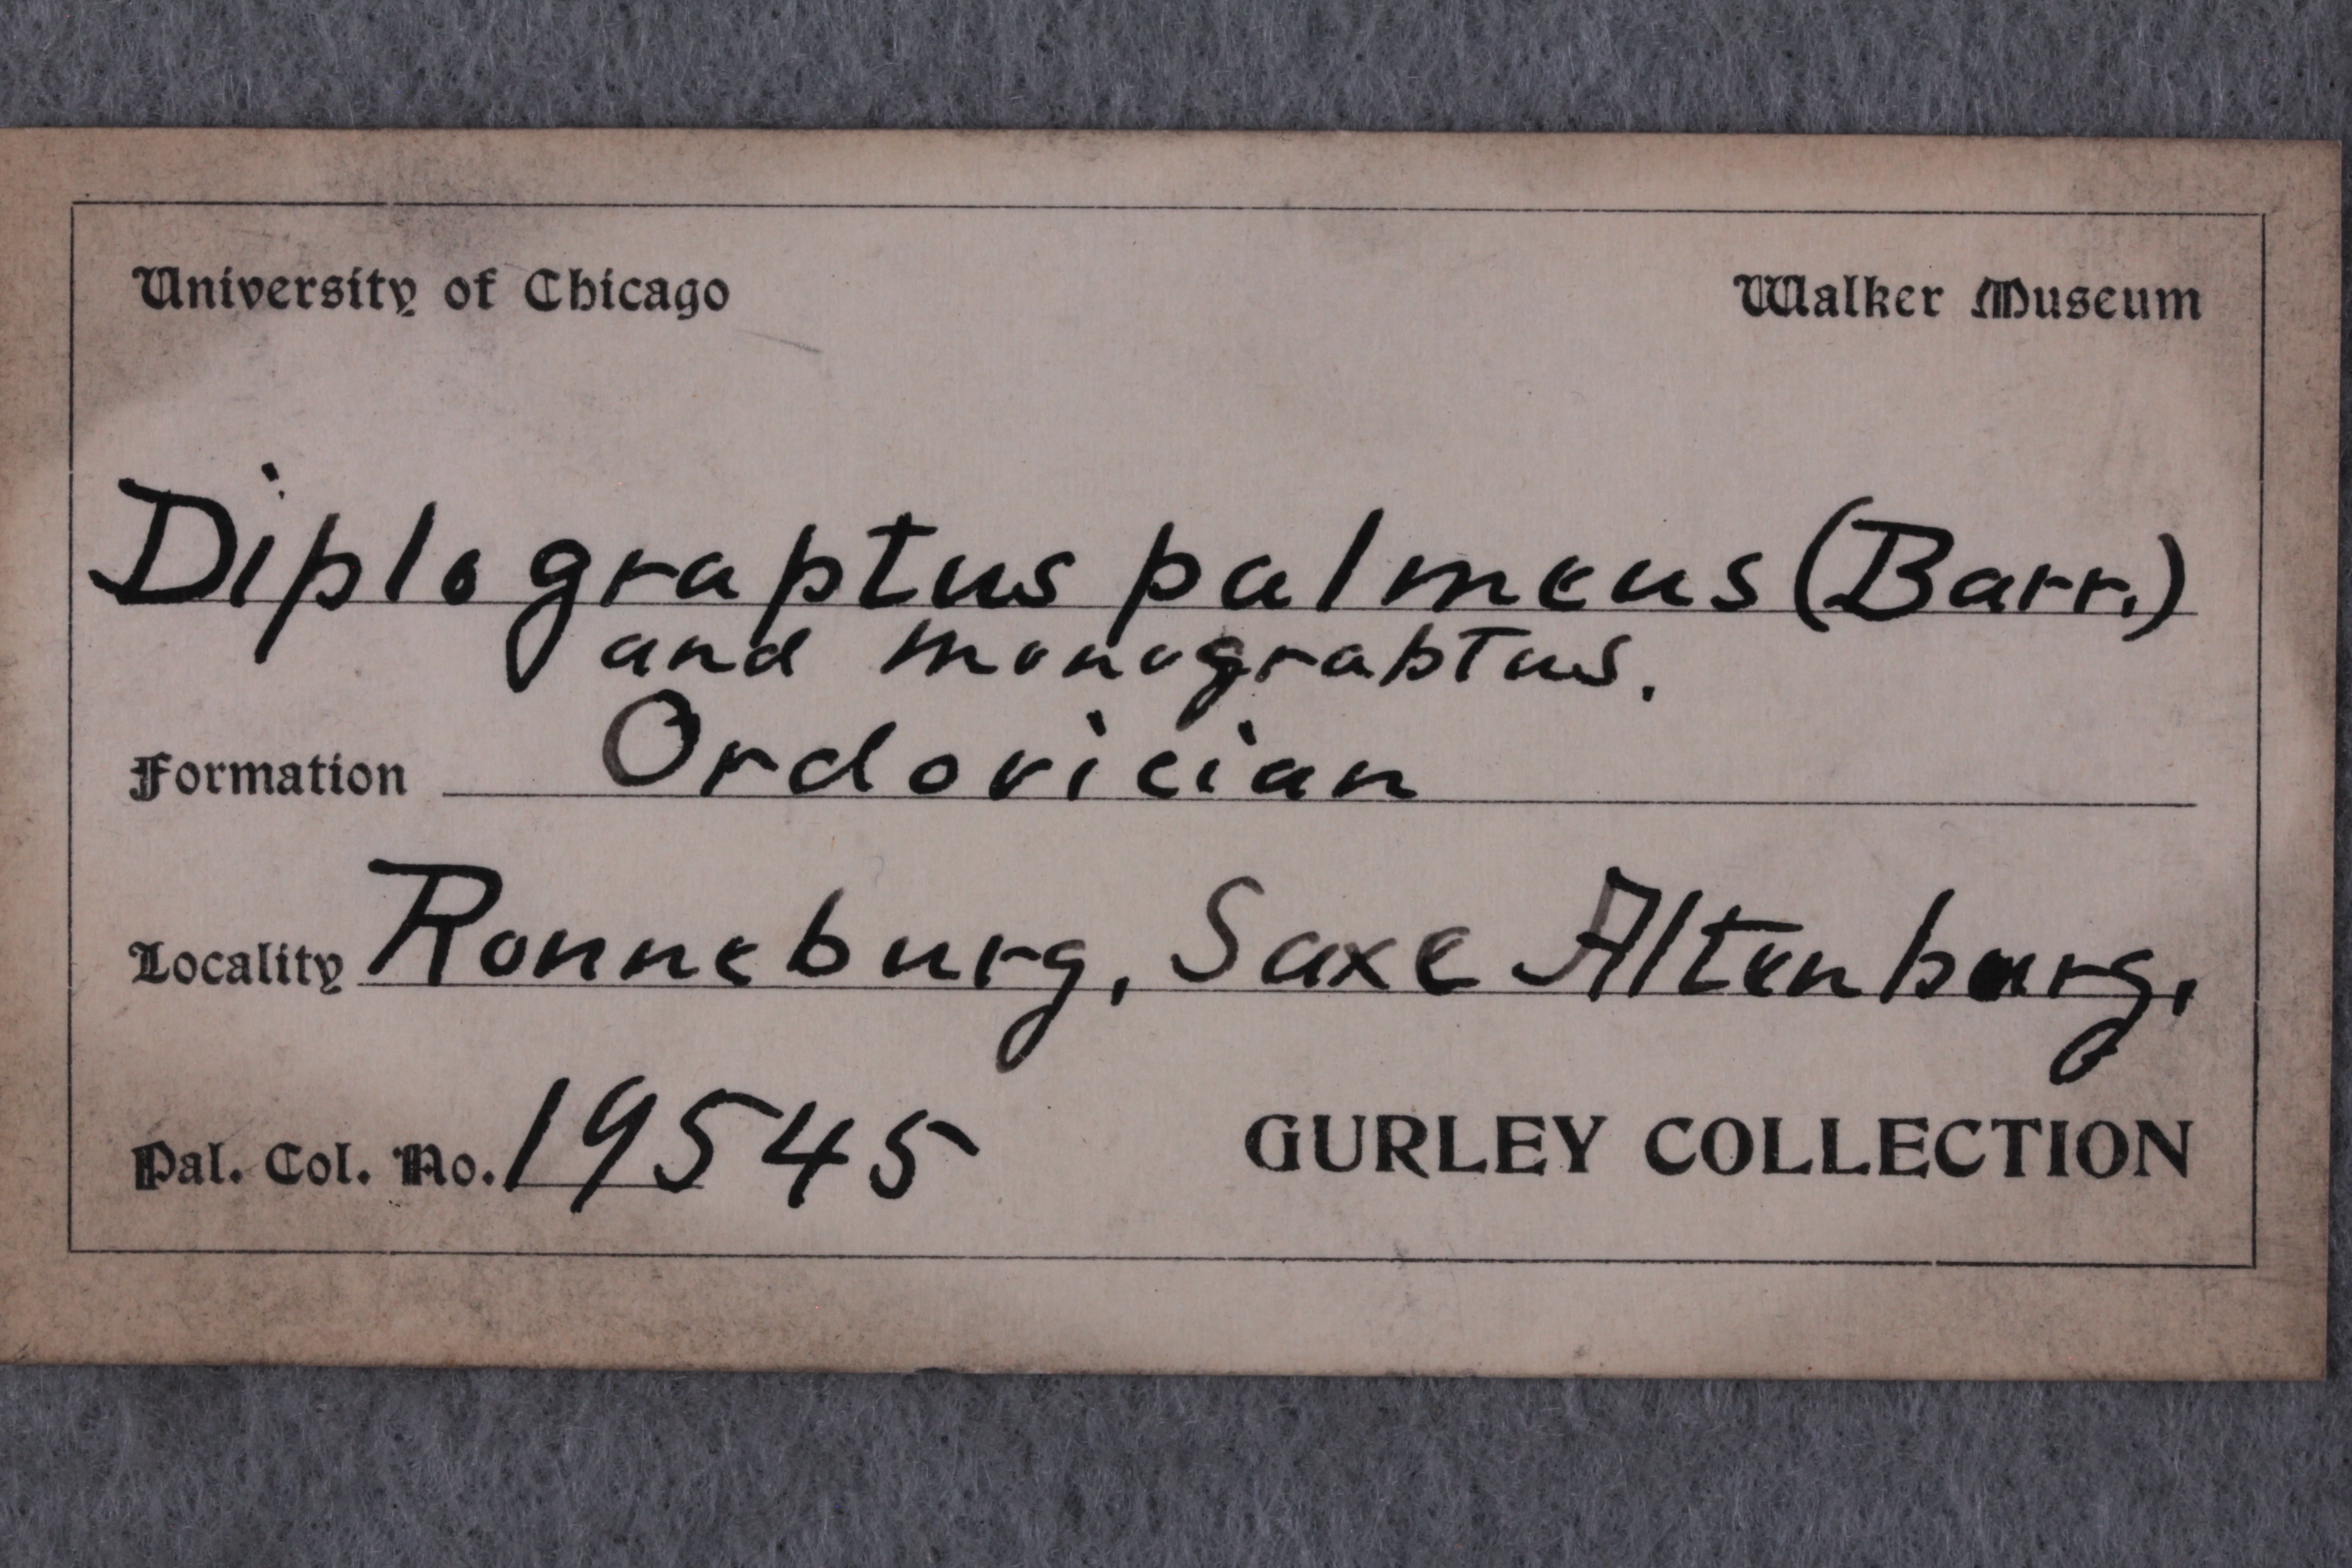 University of Chicago Walker Museum
Diplograptus palmeus (Barr.)
and monograptus.
Formation Ordovician
Locality Ronneburg, Saxe Altenburg,
Pal. Col. No. 19545 GURLEY COLLECTION